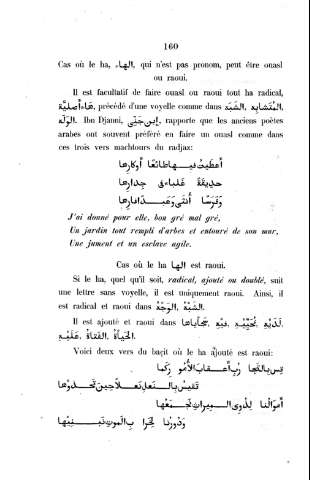 160
Cas où le ha, الهاء, qui n'est pas pronom, peut être ouasl
ou raoui.
Il est facultatif de faire ouasl ou raoui tout ha radical,
هاء أصلية, précédé d'une voyelle comme dans المتشابه, الشبه,
الوله. Ibn Djanni, ابن جني, rapporte que les anciens poètes
arabes ont souvent préféré en faire un ouasl comme dans
ces trois vers machtours du radjax:
أعطيت فيها طائعا أو كارها
حديقة غلباء في جدارها
وفرسا أنثى وعبدا فارها
J'ai donné pour elle, bon gré mal gré,
Un jardin tout rempli d'arbres et entouré de son mur,
Une jument et un esclave agile.
Cas où le ha الها est raoui.
Si le ha, quel qu'il soit, radical, ajouté ou doublé, suit
une lettre sans voyelle, il est uniquement raoui. Ainsi, il
est radical et raoui dans الوجه, الشبه.
Il est ajouté et raoui dans لديه, فيه,
عليه, الفتاة, الحياة.
Voici deux vers du bacit où le ha ajouté est raoui:
أموالنا لذوي الميراث نجمعها
ودورنا لخراب الموت نبنيها